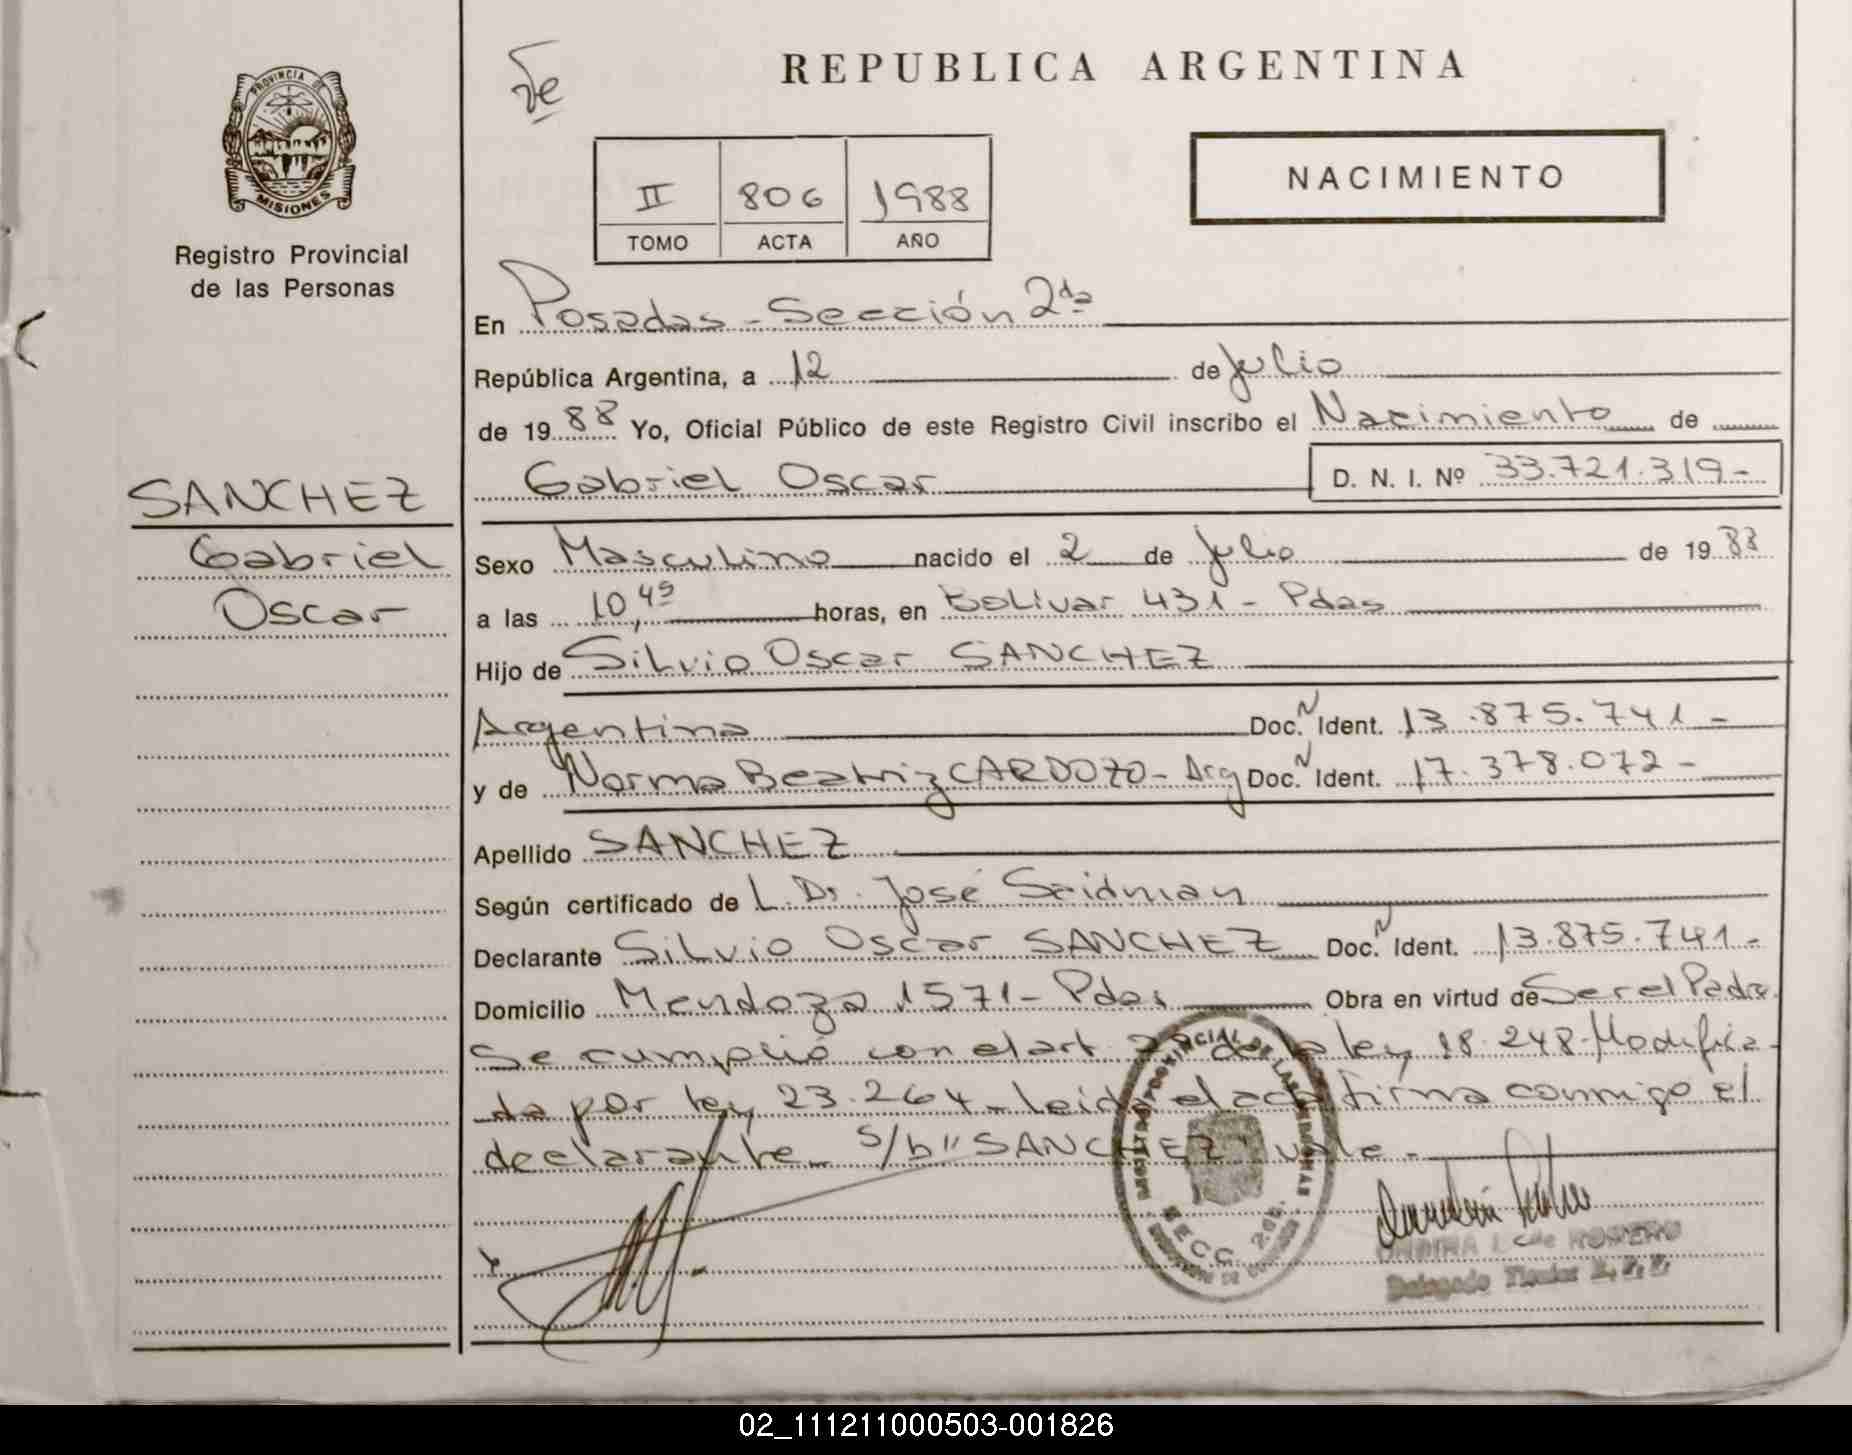 PROVINCIA DE
MISIONES
Registro Provincial
de las Personas
SANCHEZ
Gabriel
Oscar
REPUBLICA ARGENTINA
II 806 1988
TOMO ACTA AÑO
NACIMIENTO
En Posadas - Sección 2da
República Argentina, a 12 de Julio
de 1988 Yo, Oficial Público de este Registro Civil inscribo el Nacimiento de
Gabriel Oscar D. N. I. Nº 33.721.319-
Sexo Masculino nacido el 2 de Julio de 1988
a las 10,45 horas, en Bolivar 431 - Pdas
Hijo de Silvio Oscar SANCHEZ
Argentina Doc. N Ident. 13.875.741-
y de Norma Beatriz CARDOZO - Arg Doc. N Ident. 17.378.072-
Apellido SANCHEZ
Según certificado de L. Dr. José Seidman
Declarante Silvio Oscar SANCHEZ Doc. N Ident. 13.875.741-
Domicilio Mendoza 1571 - Pdas Obra en virtud de Ser el Padre.
Se cumplió con el art. de la ley 18.248 - Modifica-
da por ley 23.264 - leida el acta firma conmigo el
declarante - S/b "SANCHEZ" vale -
SECC. 2da.
ROMERO
Delegado Titular
02_111211000503-001826